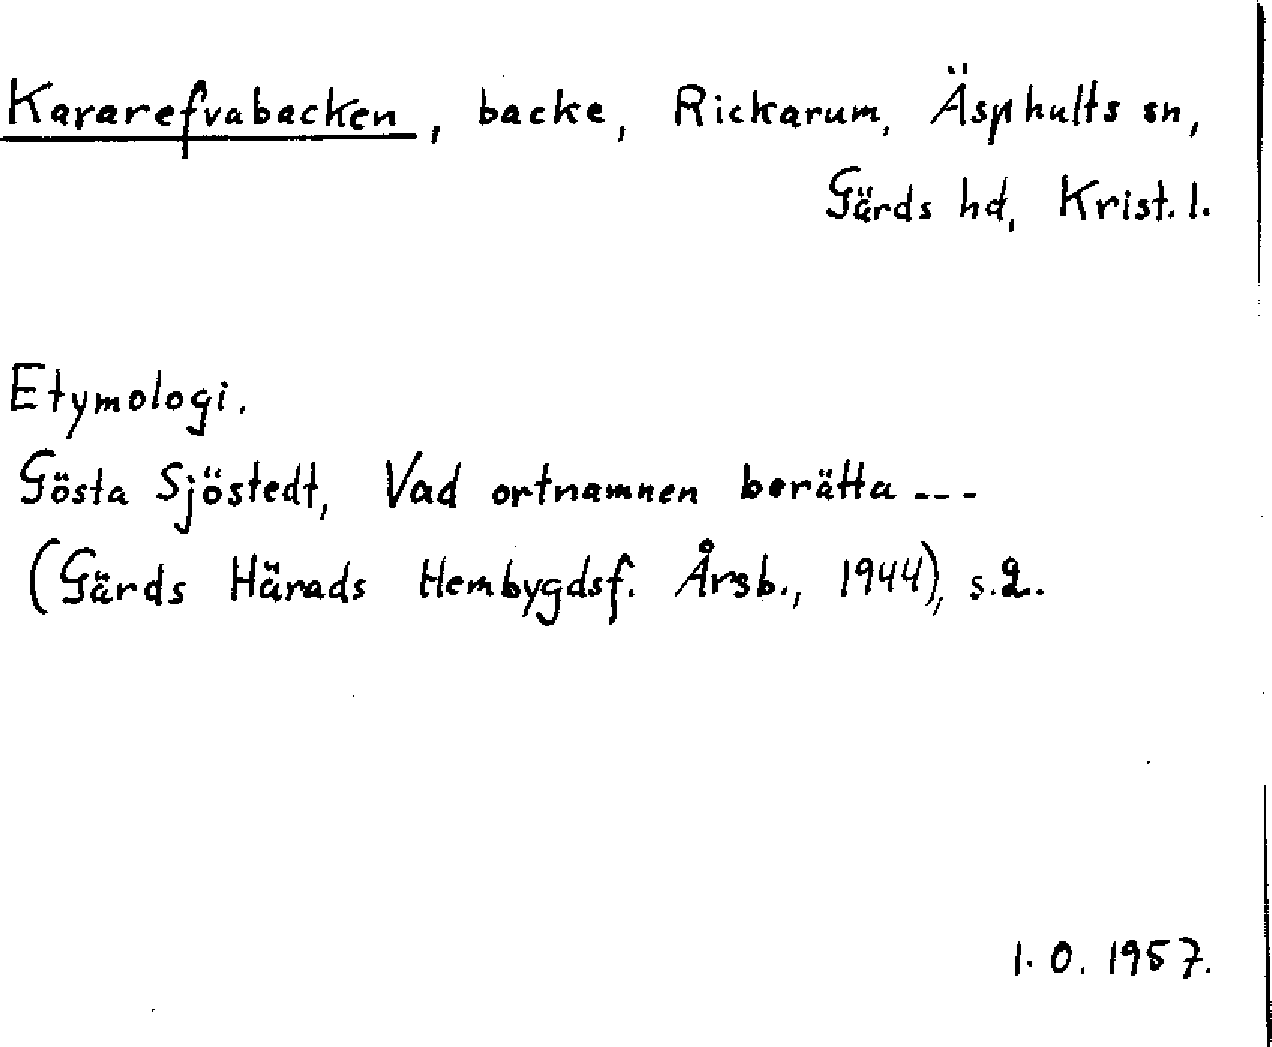 Kararefvabacken, backe, Rickarum, Äsphults sn,
Gärds hd, Krist. l.
Etymologi.
Gösta Sjöstedt, Vad ortnamnen berätta ---
(Gärds Härads Hembygdsf. Årsb., 1944), s.
1. O. 1957.